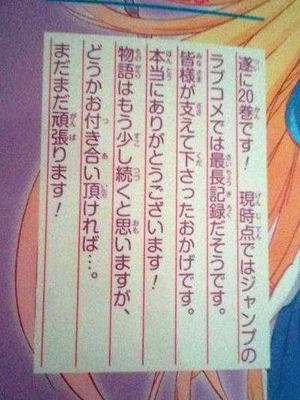 遂に20巻です！　現時点ではジャンプの
ラブコメでは最長記録だそうです。
皆様が支えて下さったおかげです。
本当にありがとうございます！
物語はもう少し続くと思いますが、
どうかお付き合い頂ければ…。
まだまだ頑張ります！